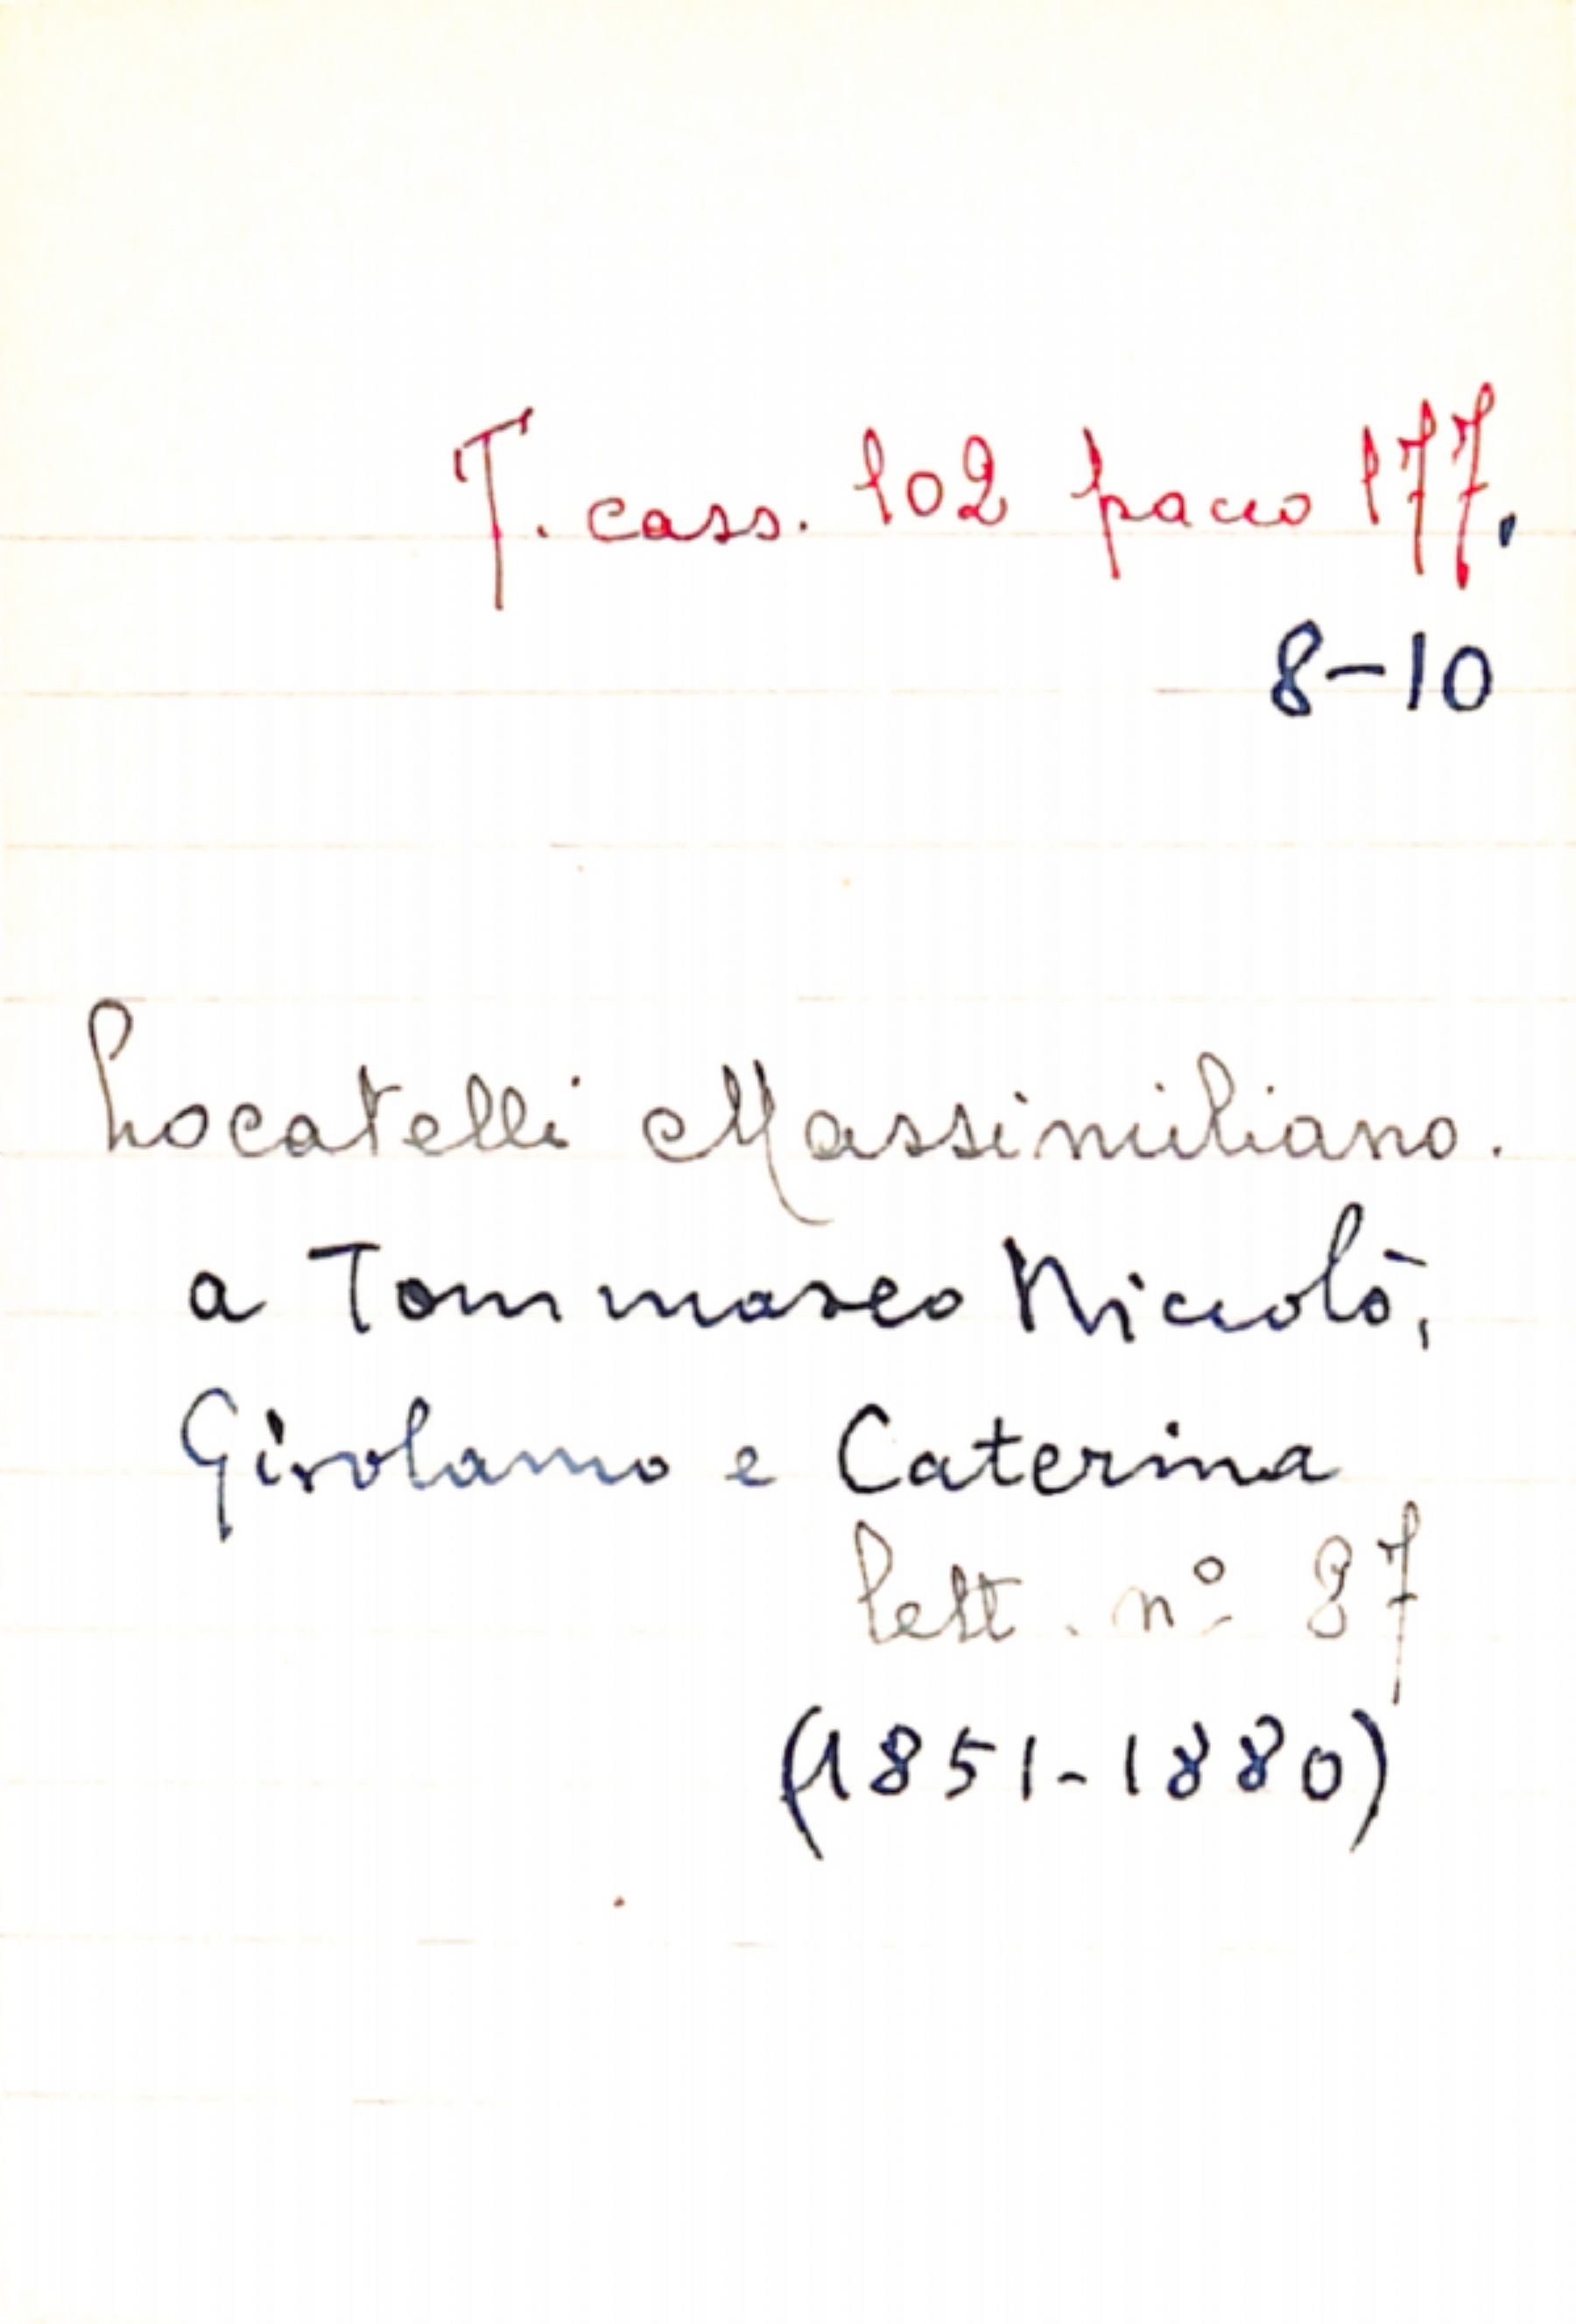 T. cass. 102 pacco 177,
8-10
Locatelli Massimiliano.
a Tommaseo Niccolò,
Girolamo e Caterina
lett. nº 87
(1851-1880)